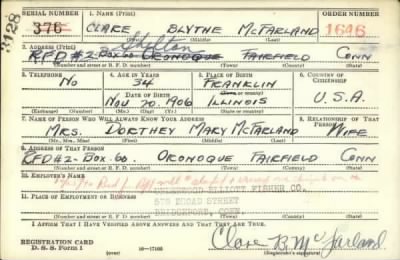 SERIAL NUMBER 1. NAME (Print) ORDER NUMBER
376 CLARE BLYTHE McFARLAND 1646
3128
(First) (Middle) (Last)
2. ADDRESS (Print) Shelton
RFD #2-BOX 60 ORONOQUE FAIRFIELD CONN
(Number and street or R. F. D. number) (Town) (County) (State)
3. TELEPHONE 4. AGE IN YEARS 5. PLACE OF BIRTH 6. COUNTRY OF CITIZENSHIP
No 34 FRANKLIN
DATE OF BIRTH (Town or county)
NOV 20 1906 ILLINOIS U.S.A.
(Exchange) (Number) (Mo.) (Day) (Yr.) (State or country)
7. NAME OF PERSON WHO WILL ALWAYS KNOW YOUR ADDRESS 8. RELATIONSHIP OF THAT PERSON
MRS. DORTHEY MARY McFARLAND WIFE
(Mr., Mrs., Miss) (First) (Middle) (Last)
9. ADDRESS OF THAT PERSON
RFD #2-BOX-60. ORONOQUE FAIRFIELD CONN
(Number and street or R. F. D. number) (Town) (County) (State)
10. EMPLOYER'S NAME
ELLIOTT FISHER CO.
11. PLACE OF EMPLOYMENT OR BUSINESS
BROAD STREET
BRIDGEPORT, CONN.
(Number and street or R. F. D. number) (Town) (County) (State)
I AFFIRM THAT I HAVE VERIFIED ABOVE ANSWERS AND THAT THEY ARE TRUE.
REGISTRATION CARD
D. S. S. Form 1 16-17105 Clare B. McFarland
(Registrant's signature)